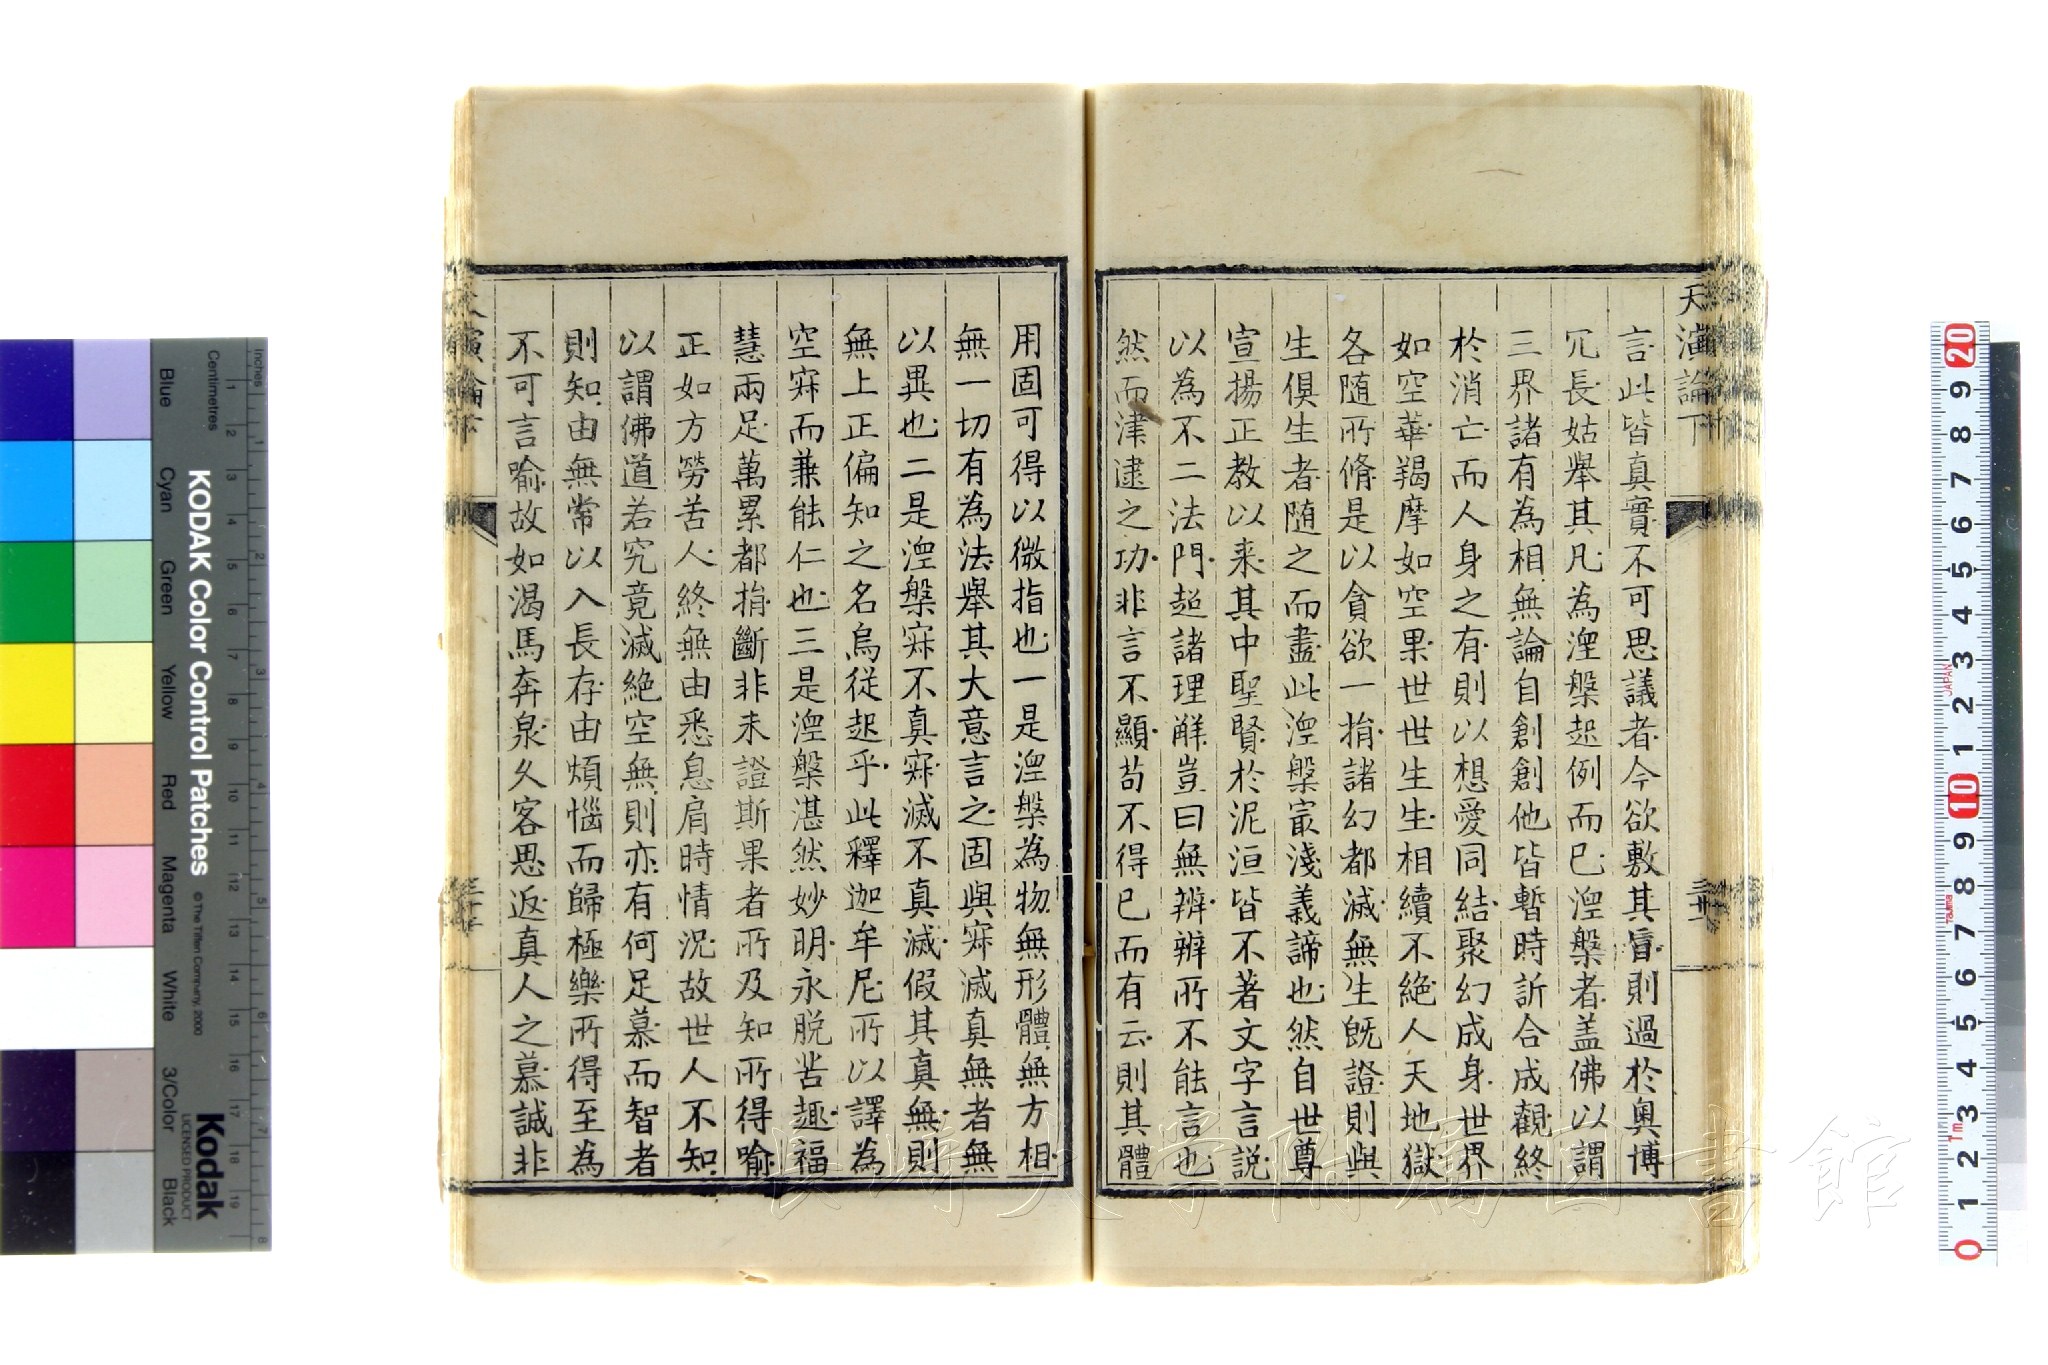 天演論下
言此皆真實不可思議者今欲敷其㫖則過於奧博
冗長姑舉其凡為湼槃起例而已湼槃者盖佛以謂
三界諸有為相無論自創創他皆暫時訢合成觀終
於消亡而人身之有則以想愛同結聚幻成身世界
如空華羯摩如空果世世生生相續不絶人天地獄
各隨所脩是以貪欲一捐諸幻都滅無生旣證則與
生俱生者隨之而盡此湼槃㝡淺義諦也然自世尊
宣揚正教以来其中聖賢於泥洹皆不著文字言説
以為不二法門超諸理解豈曰無辨辨所不能言也
然而津逮之功非言不顯苟不得已而有云則其體
用固可得以微指也一是湼槃為物無形體無方相
無一切有為法舉其大意言之固與寂滅真無者無
以異也二是湼槃寂不真寂滅不真滅假其真無則
無上正偏知之名烏従起乎此釋迦牟尼所以譯為
空寂而兼能仁也三是湼槃湛然妙明永脱苦趣福
慧兩足萬累都捐斷非未證斯果者所及知所得喻
正如方勞苦人終無由悉息肩時情況故世人不知
以謂佛道若究竟滅絶空無則亦有何足慕而智者
則知由無常以入長存由煩惱而歸極樂所得至為
不可言喻故如渴馬奔泉久客思返真人之慕誠非
演論下
KODAK Color Control Patches
© The Tiffen Company, 2000
Kodak
LICENSED PRODUCT
Inches
Centimetres
Blue
Cyan
Green
Yellow
Red
Magenta
White
3/Color
Black
JAPAN
Tajima
長崎大学附属図書館